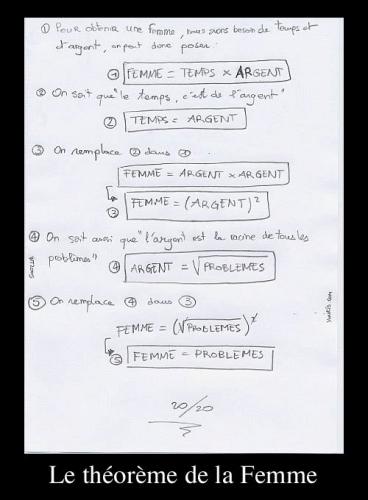 ① Pour obtenir une femme, nous avons besoin de temps et
d'argent, on peut donc poser :
① FEMME = TEMPS × ARGENT
② On sait que "le temps, c'est de l'argent"
② TEMPS = ARGENT
③ On remplace ② dans ①
FEMME = ARGENT × ARGENT
③ FEMME = (ARGENT)²
④ On sait aussi que "l'argent est la racine de tous les
problèmes"
④ ARGENT = √PROBLEMES
⑤ On remplace ④ dans ③
FEMME = (√PROBLEMES)²
⑤ FEMME = PROBLEMES
20/20
Le théorème de la Femme